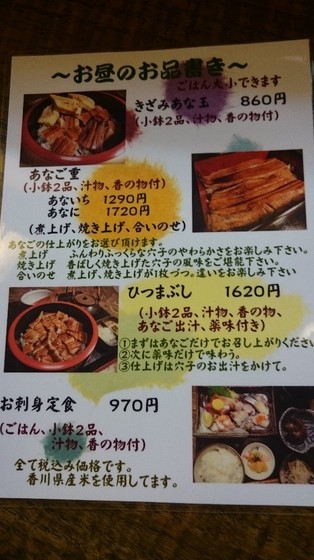 ～お昼のお品書き～
ごはん大小できます
きざみあな玉　860円
(小鉢2品、汁物、香の物付)
あなご重
(小鉢2品、汁物、香の物付)
あないち　1290円
あなに　1720円
(煮上げ、焼き上げ、合いのせ)
あなごの仕上がりをお選び頂けます。
煮上げ　ふんわりふっくらな穴子のやわらかさをお楽しみ下さい。
焼き上げ　香ばしく焼き上げた穴子の風味をご堪能下さい。
合いのせ　煮上げ、焼き上げが1枚づつ。違いをお楽しみ下さい。
ひつまぶし　1620円
(小鉢2品、汁物、香の物、
あなご出汁、薬味付き)
①まずはあなごだけでお召し上がりください
②次に薬味だけで味わう。
③仕上げは穴子のお出汁をかけて。
お刺身定食　970円
(ごはん、小鉢2品、
汁物、香の物付)
全て税込み価格です。
香川県産米を使用してます。